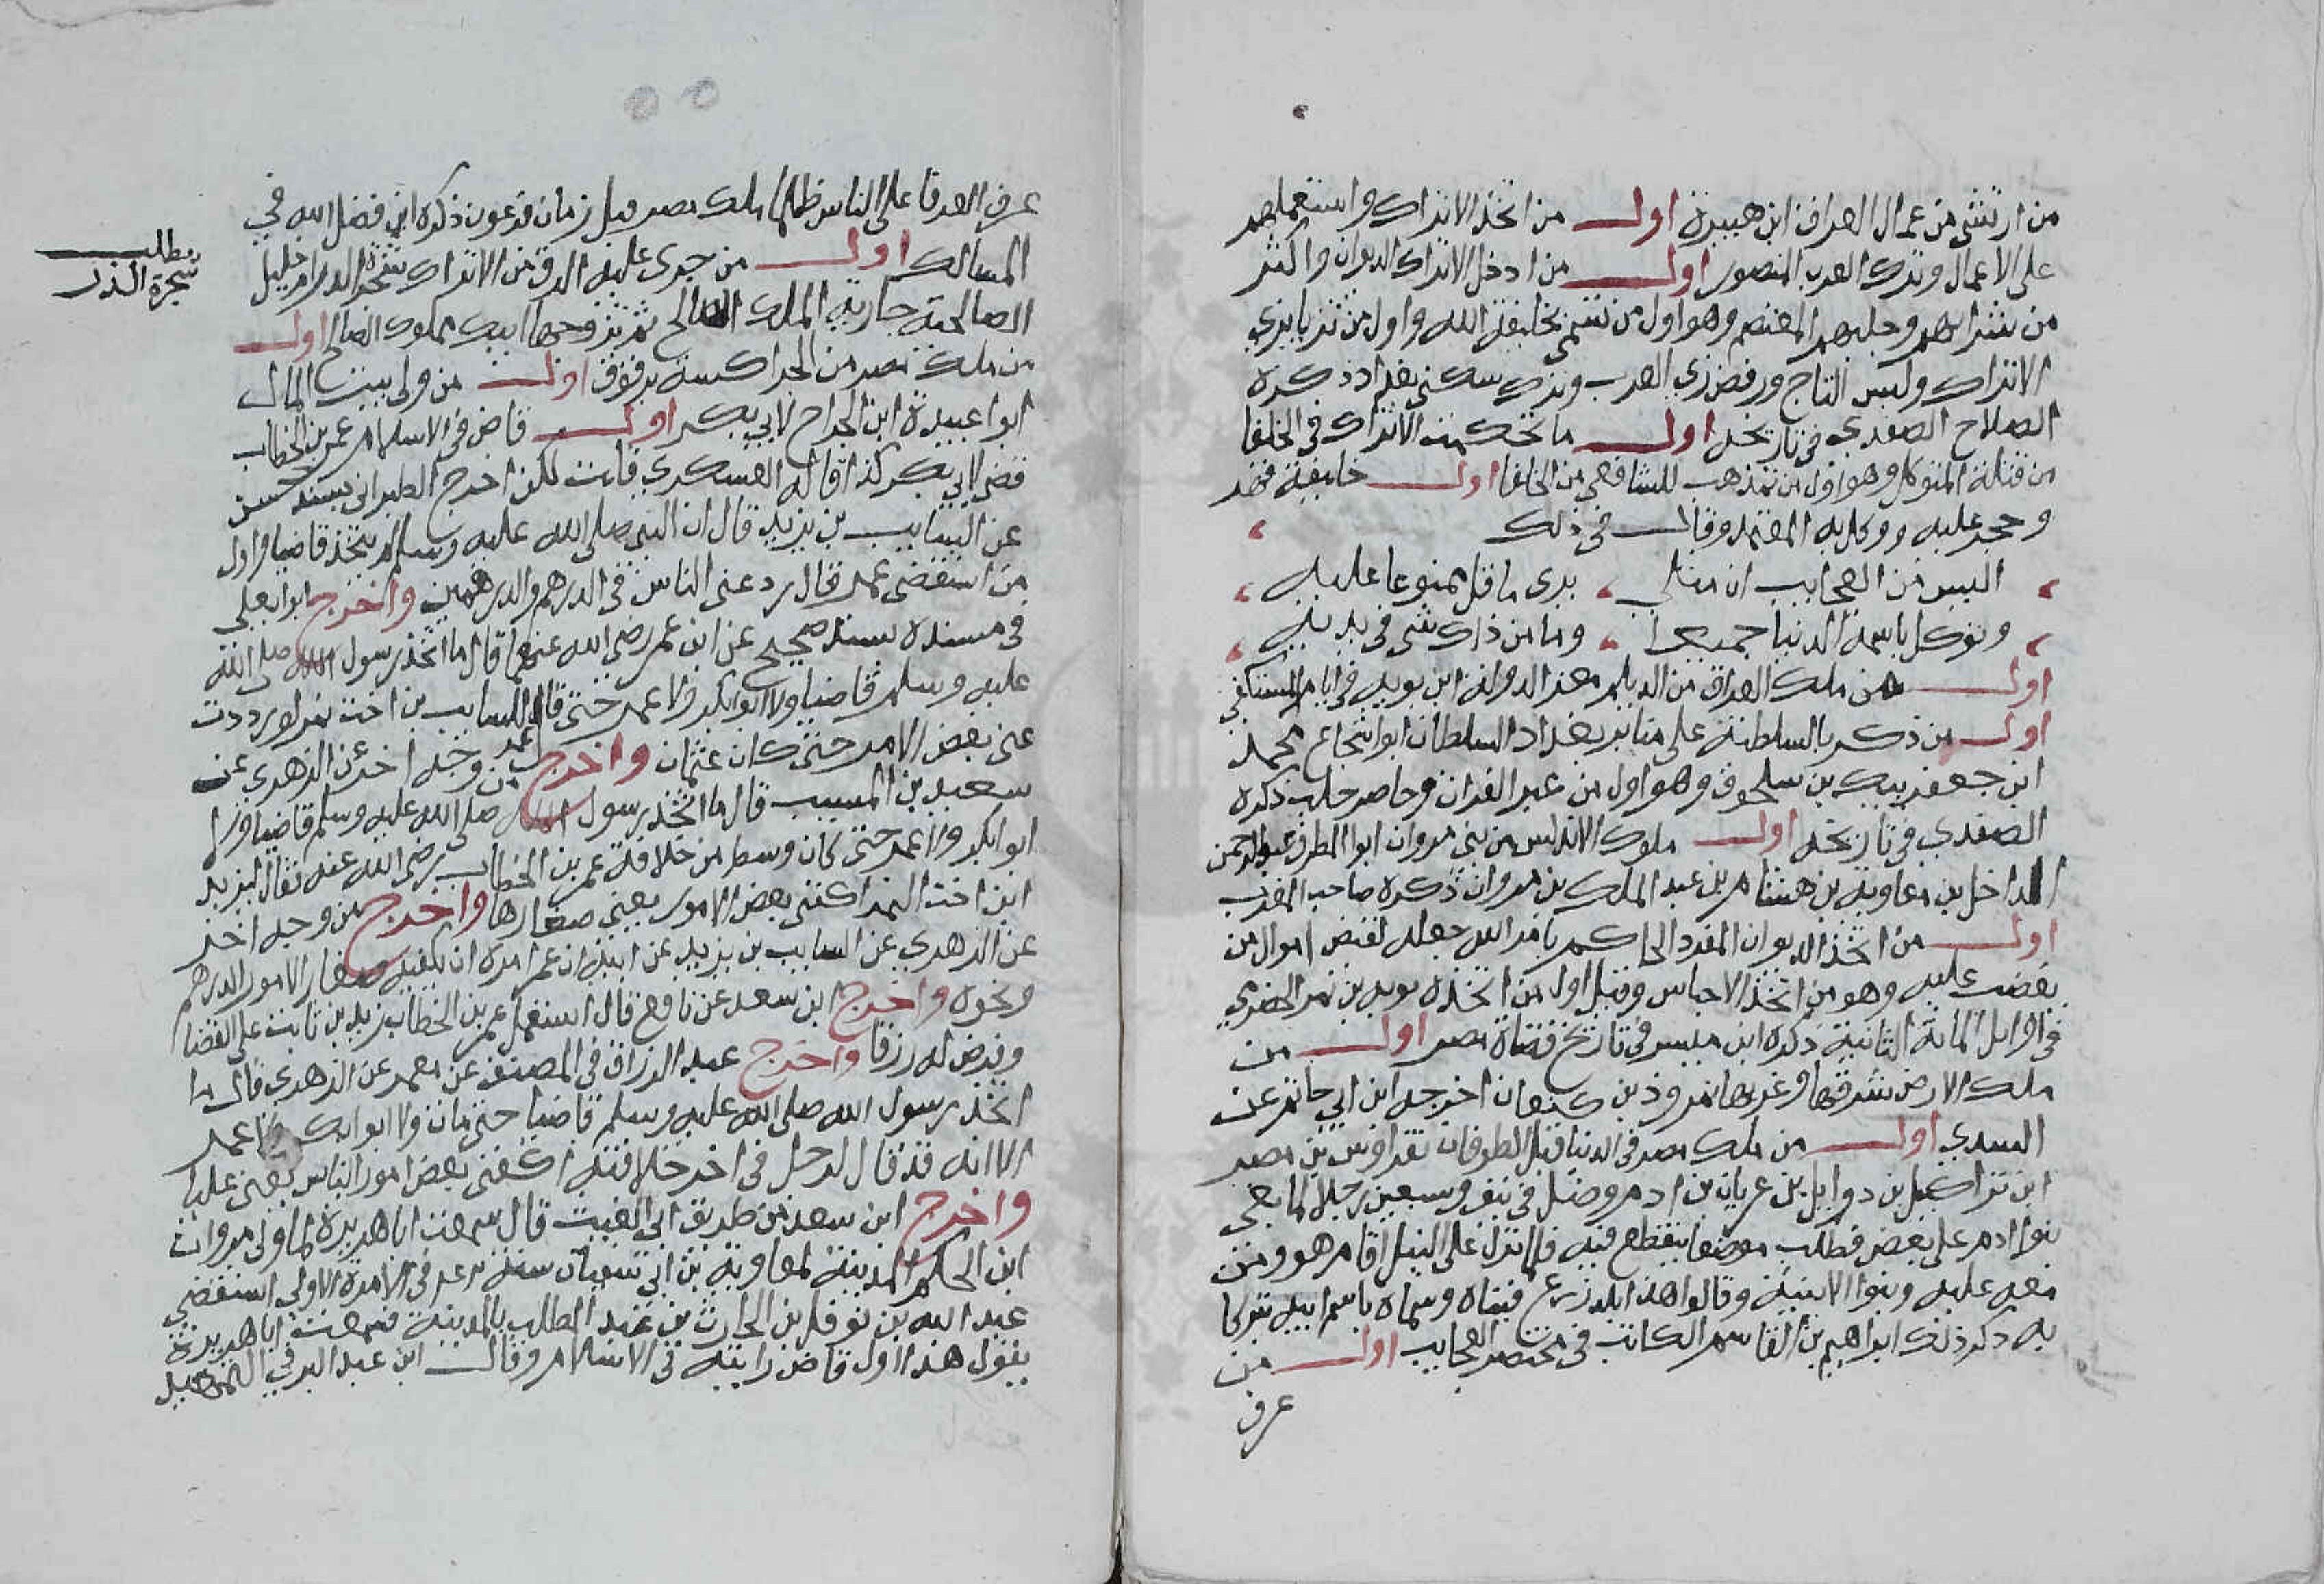 من ارتشى من عمال العراق ابن هبيرة اول من اتخذ الاتراك واستعملهم
على الاعمال وترك العرب المنصور اول من ادخل الاتراك الديوان واكثر
من شرائهم وجلبهم المعتصم وهو اول من تسمى بخليفة الله واول من تزيا بزي
الاتراك ولبس التاج ورفض زي العرب وترك سكنى بغداد ذكره
الصلاح الصفدي في تاريخه اول ما تحكمت الاتراك في الخلفا
من قتلة المتوكل وهو اول من تمذهب للشافعي من الخلفا اول خليفة قهر
وحجر عليه ووكل به المعتمد وقال في ذلك
اليس من العجايب ان مثلي يرى ما قل ممتوعا عليه
وتوكل باسمه الدنيا جميعا وما من ذاك شي في يديه
اول من ملك العراق من الديلم معز الدولة ابن بويه في ايام المستكفي
اول من ذكر بالسلطنة على منابر بغداد السلطان ابوا شجاع محمد
ابن جعفر بيك بن سلجوق وهو اول من عبر الفرات وحاصر حلب ذكره
الصفدي في تاريخه اول ملوك الاندلس من بني مروان ابوا المطرف عبد الرحمن
الداخل بن معاوية بن هشام بن عبد الملك بن مروان ذكره صاحب المغرب
اول من اتخذ الديوان المفرد الحاكم بامر الله جعله لقبض اموال من
يغضب عليه وهو من اتخذ الاحباس وقيل اول من اتخذه توبه بن نمر الحضري
في اوايل المائة الثانية ذكره ابن ميسر في تاريخ قضاة مصر اول من
ملك الارض شرقها وغربها نمروذ بن كنعان اخرجه ابن ابي حاتم عن
السدي اول من ملك مصر في الدنيا قبل الطوفان نقراوس بن مصر
ابن براكيل بن دوابل بن عريان بن ادم وصل في نيف وسبعين رجلا لما بغى
بنوا ادم على بعض فطلب موضعا ينقطع فيه فلما نزل على النيل اقام هو ومن
معه عليه وبنوا الابنية وقالوا هذا بلد زرع فبناه وسماه باسم ابيه تبركا
به ذكر ذلك ابراهيم بن القاسم الكاتب في مختصر العجايب اول من
عرف
عرف العرفا على الناس ظلما ملك مصر قبل زمان فرعون ذكره ابن فضل الله في
المسالك اول من جرى عليه الرق من الاتراك شجرة الدر ام خليل
الصالحية جارية الملك الصالح ثم تزوجها ايبك مملوك الصالح اول
من ملك مصر من الجراكسة برقوق اول من ولي بيت المال
ابوا عبيدة ابن الجراح لابي بكر اول قاض في الاسلام عمر بن الخطاب
قضى لابي بكر كذا قاله العسكري قلت لكن اخرج الطبراني بسند حسن
عن السايب بن يزيد قال ان النبي صلى الله عليه وسلم لم يتخذ قاضيا واول
من استقضى عمر قال رد عني الناس في الدرهم والدرهمين واخرج ابوا يعلى
في مسنده بسند صحيح عن ابن عمر رضي الله عنهما قال ما اتخذ رسول الله صلى الله
عليه وسلم قاضيا ولا ابوابكر ولا عمر حتى قال للسايب بن اخت نمر لو رددت
عني بعض الامر حتى كان عثمان واخرج من وجه اخر عن الزهري عن
سعيد بن المسيب قال ما اتخذ رسول الله صلى الله عليه وسلم قاضيا ولا
ابوابكر ولا عمر حتى كان وسط من خلافة عمر بن الخطاب رضي الله عنه فقال ليزيد
ابن اخت النمر اكفني بعض الامور يعني صغارها واخرج من وجه اخر
عن الزهري عن السايب بن يزيد عن ابيه ان عمر امره ان يكفيه صغار الامور الدرهم
ونحوه واخرج ابن سعد عن نافع قال استعمل عمر بن الخطاب زيد بن ثابت على القضا
وفرض له رزقا واخرج عبد الرزاق في المصنف عن معمر عن الزهري قال ما
اتخذ رسول الله صلى الله عليه وسلم قاضيا حتى مات ولا ابوابكر ولا عمر
الا انه قد قال لرجل في اخر خلافته اكفني بعض امور الناس يعني عليا
واخرج ابن سعد من طريق ابي الغيث قال سمعت ابا هريرة لما ولي مروان
ابن الحكم المدينة لمعاوية بن ابي سفيان سنة في الامرة الاولى استقضي
عبد الله بن نوفل بن الحارث بن عبد المطلب بالمدينة فسمعت ابا هريرة
يقول هذا اول قاض رايته في الاسلام وقال ابن عبد البر في التمهيد
مطلب
شجرة الدر